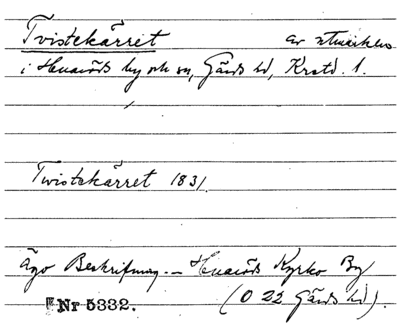 Tvistekärret av utmarken
i Huaröds by och sn, Gärds hd, Krstd. l.
Tvistekärret 1831.
Ägo Beskrifning - Huaröds Kyrko By
Nr 5332. (O 22 Gärds hd).